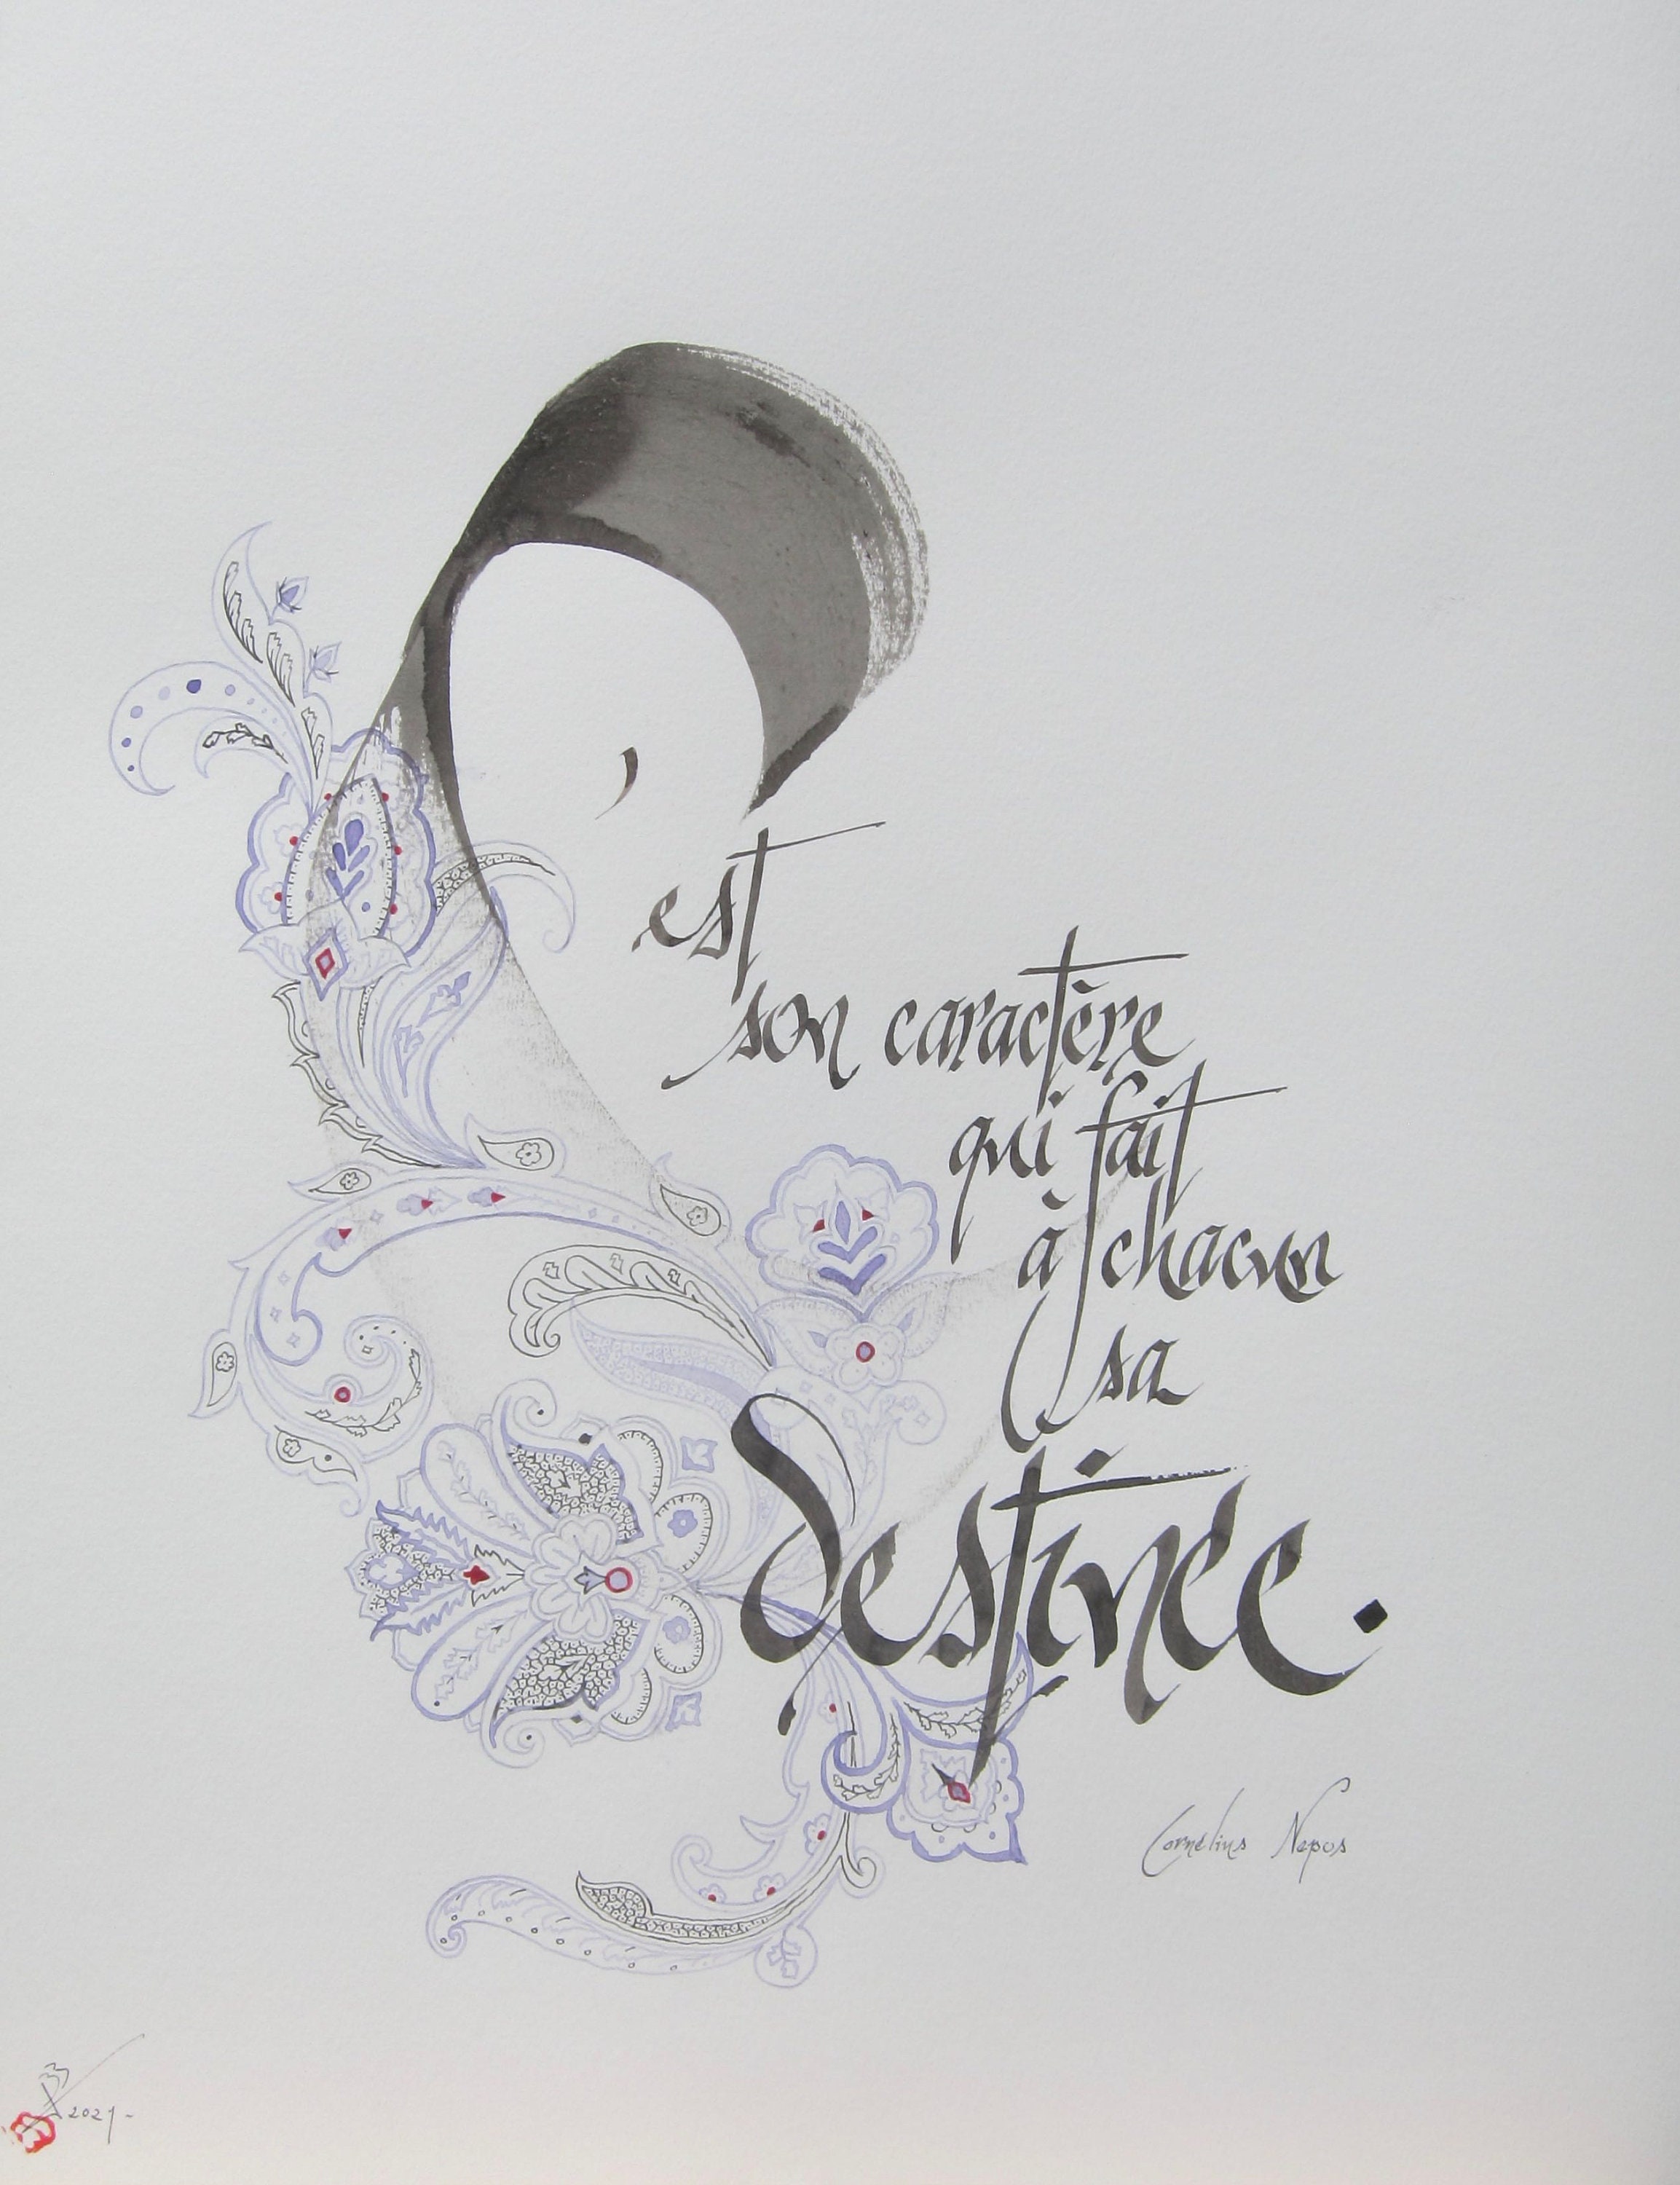 C'est
son caractère
qui fait
à chacun
sa
destinée.
Cornélius Nepos
2021-